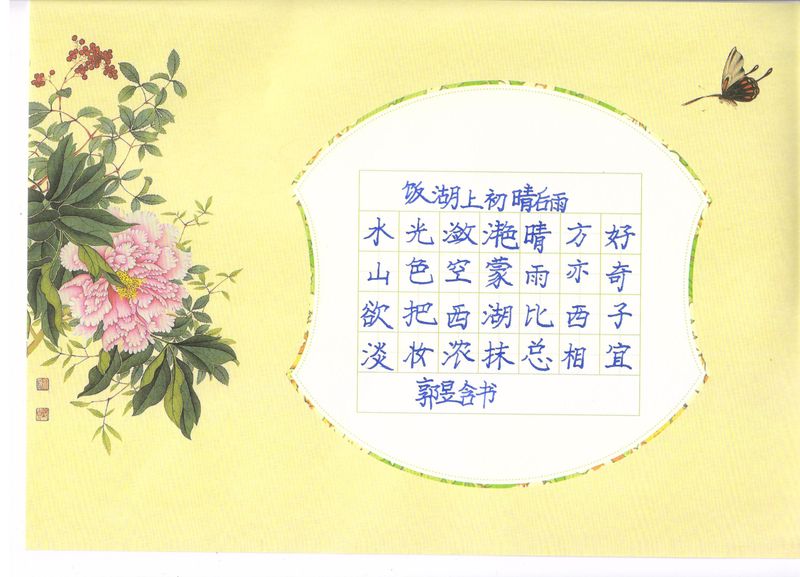 饭湖上初晴后雨
水光潋滟晴方好
山色空蒙雨亦奇
欲把西湖比西子
淡妆浓抹总相宜
郭昱含书